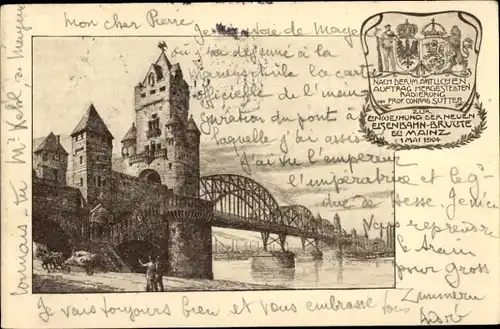 mon cher Pierre
Je
de Mayence
où j'ai déjeuné à la
la carte
officielle de l'inau
guration du pont à
laquelle j'ai assisté
J'ai vu l'empereur
l'impératrice et le
duc de Hesse. Je
vais reprendre
le train
pour Gross
Zimmern
André
Je vais toujours bien et vous embrasse tous
connais-tu Mr Kehl à
NACH DER IM AMTLICHEN
AUFTRAG HERGESTELLTEN
RADIERUNG
VON PROF. CONRAD SUTTER
ZUR
EINWEIHUNG DER NEUEN
EISENBAHN-BRÜCKE
BEI MAINZ
1 MAI 1904